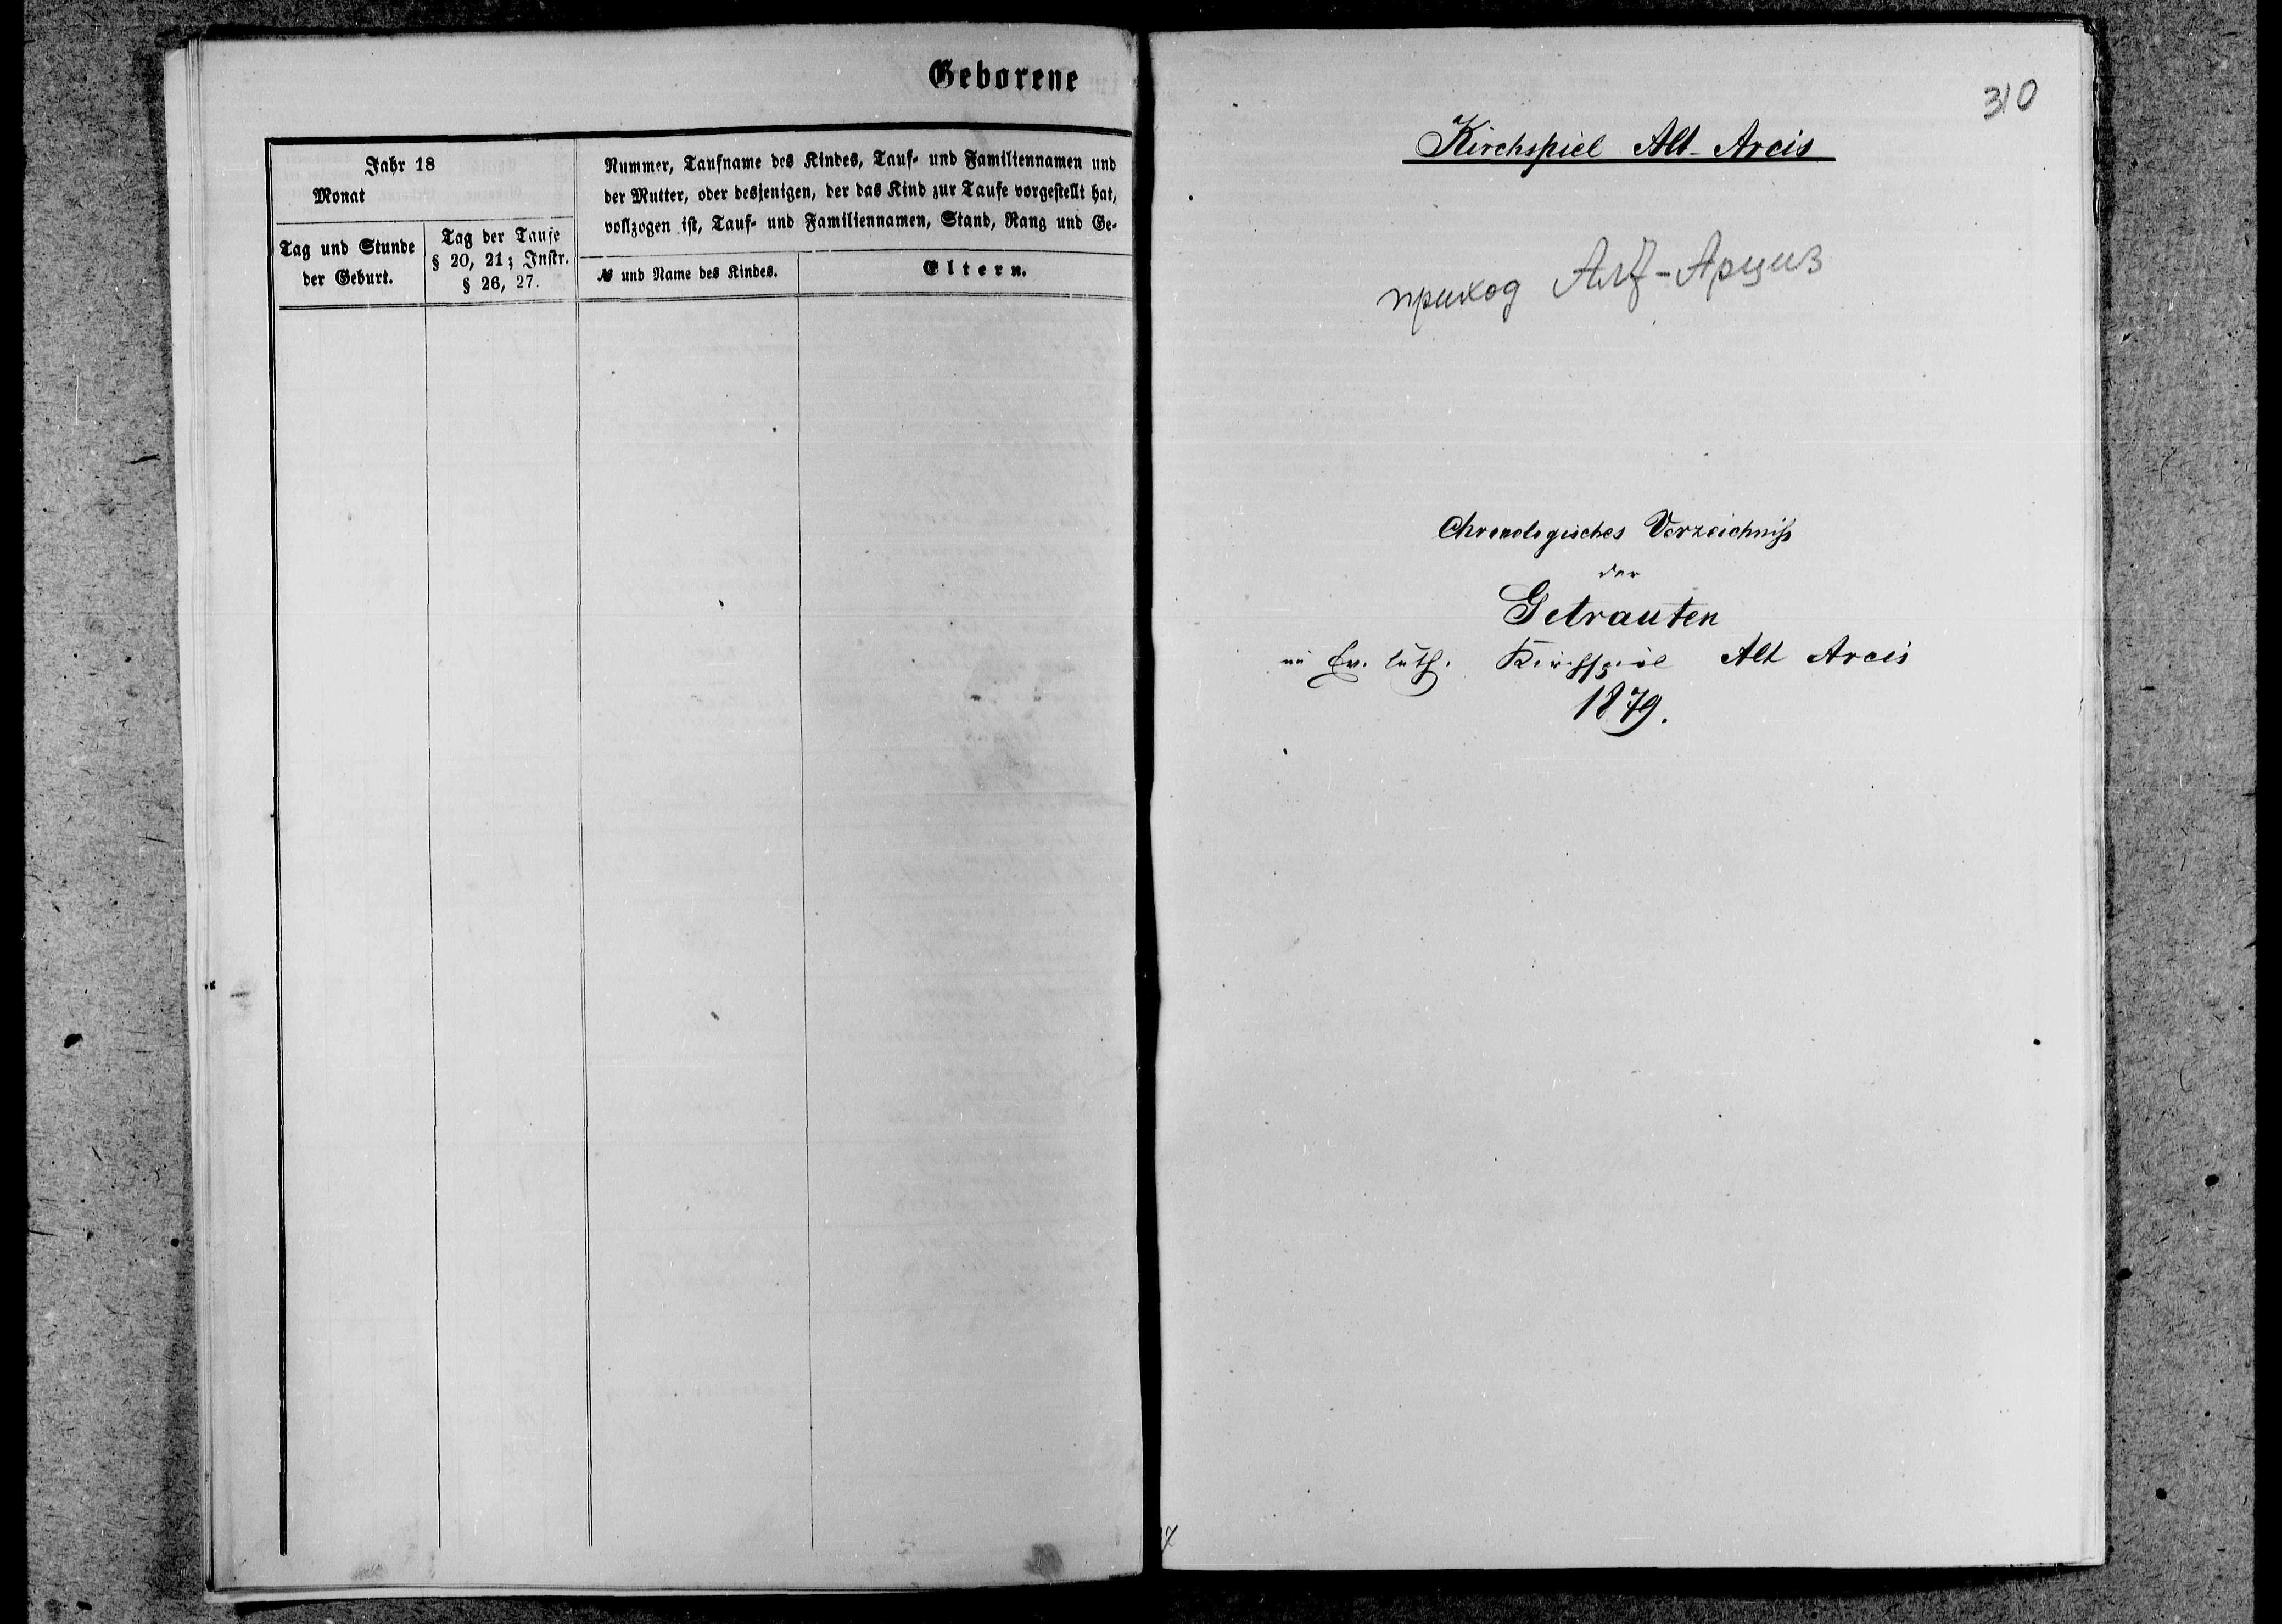 Geborene
Jahr 18
Monat
Tag und Stunde
der Geburt.
Tag der Taufe
§ 20, 21; Instr.
§ 26, 27.
Nummer, Taufname des Kindes, Tauf- und Familiennamen und
der Mutter, oder desjenigen, der das Kind zur Taufe vorgestellt hat,
vollzogen ist, Tauf- und Familiennamen, Stand, Rang und Ge-
№ und Name des Kindes.
Eltern.
310
Kirchspiel Alt-Arcis
приход Алт-Арциз
Chronologisches Verzeichniß
der
Getrauten
im Ev. luth. Kirchspiel Alt Arcis
1879.